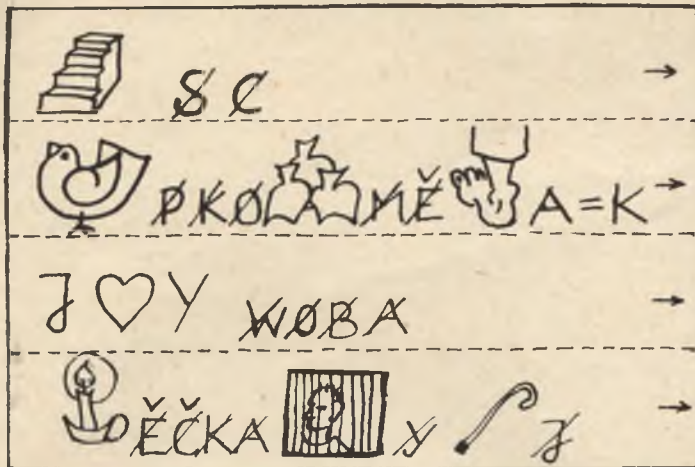 S C →
P K O M Ě A = K →
J Y W O B A →
Ě Č K A Y J →